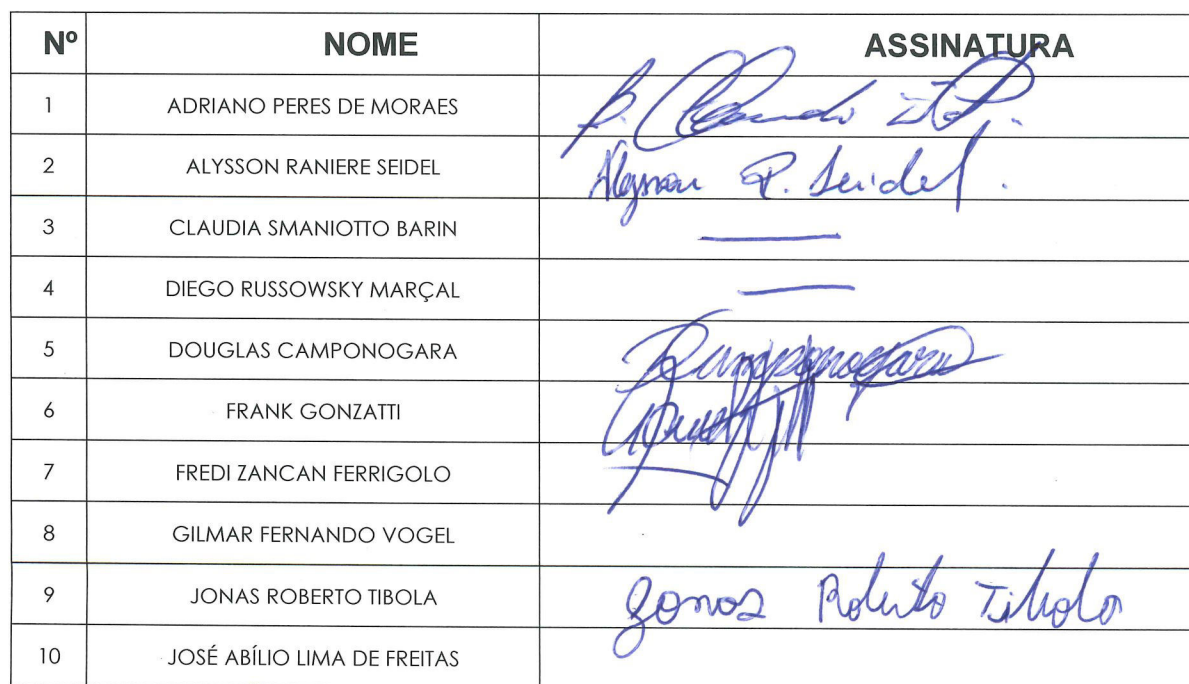 Nº NOME ASSINATURA
1 ADRIANO PERES DE MORAES
2 ALYSSON RANIERE SEIDEL Alysson R. Seidel.
3 CLAUDIA SMANIOTTO BARIN
4 DIEGO RUSSOWSKY MARÇAL
5 DOUGLAS CAMPONOGARA Camponogara
6 FRANK GONZATTI
7 FREDI ZANCAN FERRIGOLO
8 GILMAR FERNANDO VOGEL
9 JONAS ROBERTO TIBOLA Jonas Roberto Tibola
10 JOSÉ ABÍLIO LIMA DE FREITAS